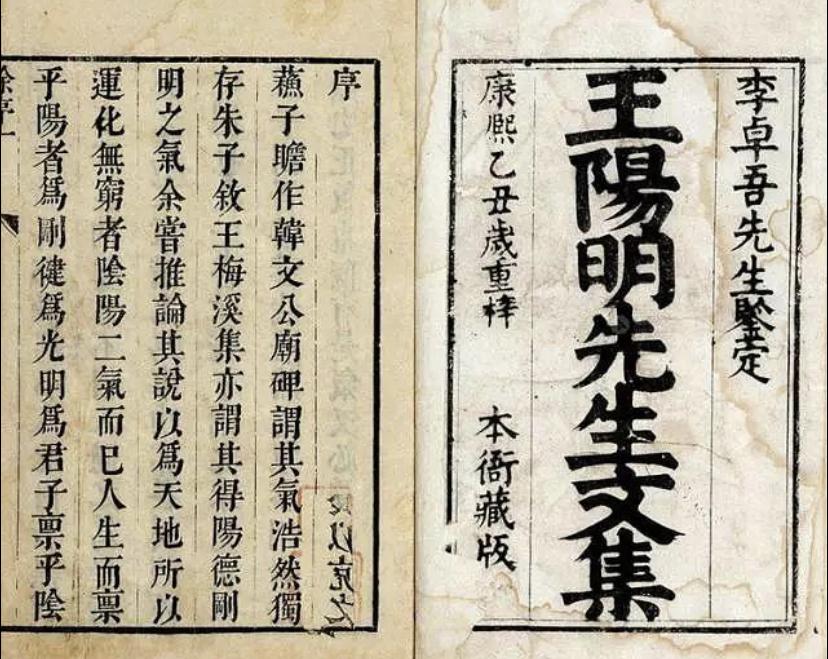 李卓吾先生鑒定
王陽明先生文集
康熙乙丑歲重梓　本衙藏版
序
蘓子瞻作韓文公廟碑謂其氣浩然獨
存朱子敘王梅溪集亦謂其得陽德剛
明之氣余嘗推論其說以為天地所以
運化無窮者陰陽二氣而已人生而禀
乎陽者為剛健為光明為君子禀乎陰